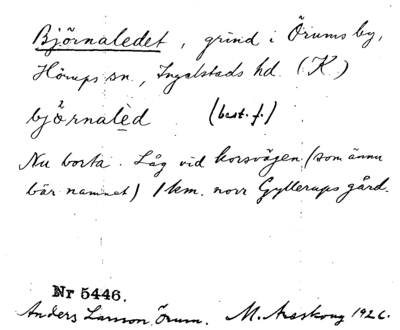 Björnaledet, grind i Örums by,
Hörups sn., Ingelstads hd. (K.)
bjö̀rnalèd (best. f.)
Nu borta. Låg vid korsvägen (som ännu
bär namnet) 1 km. norr Gyllerups gård.
Nr 5446.
Anders Larsson, Örum. M. Areskoug 1926.